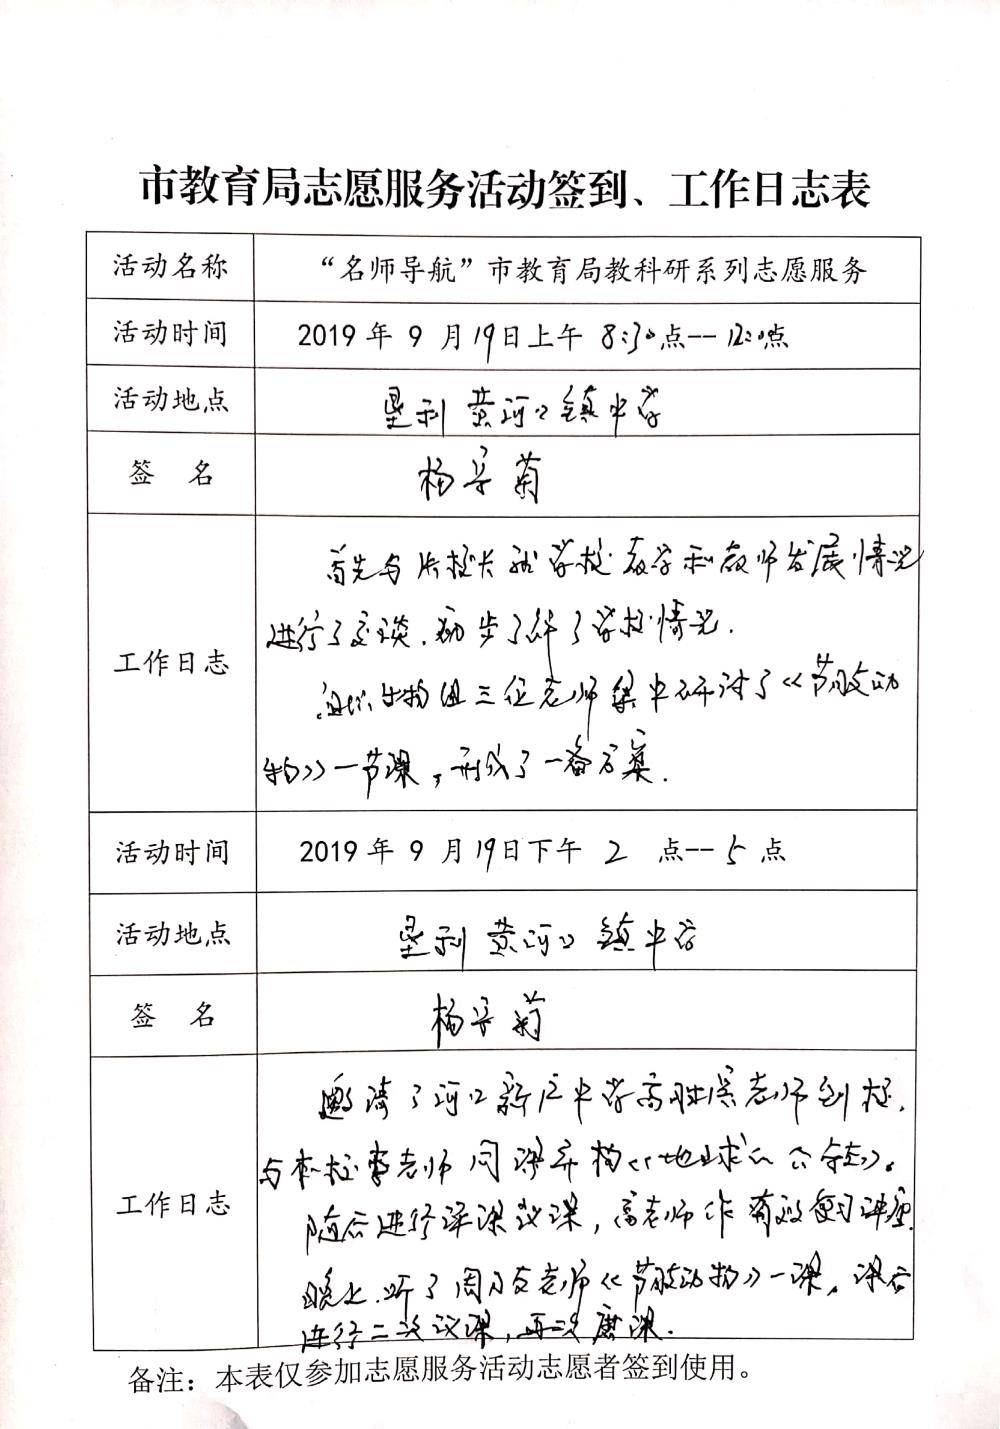 市教育局志愿服务活动签到、工作日志表
活动名称 “名师导航”市教育局教科研系列志愿服务
活动时间 2019年9月19日上午8:30点--12:0点
活动地点 垦利黄河口镇中学
签 名 杨菊
工作日志
首先与校长就学校教学和教师发展情况
进行了交谈.初步了解了学校情况.
组织生物组三位老师集中研讨了《节肢动
物》一节课,形成了一备方案.
活动时间 2019年9月19日下午2 点--5点
活动地点 垦利黄河口镇中学
签 名 杨菊
工作日志
邀请了河口新户中学高老师到校,
与本校李老师同课异构《地球的公转》。
随后进行评课议课,高老师作有效复习讲座.
晚上.听了周老师《节肢动物》一课。课后
进行二次议课,再次磨课.
备注：本表仅参加志愿服务活动志愿者签到使用。